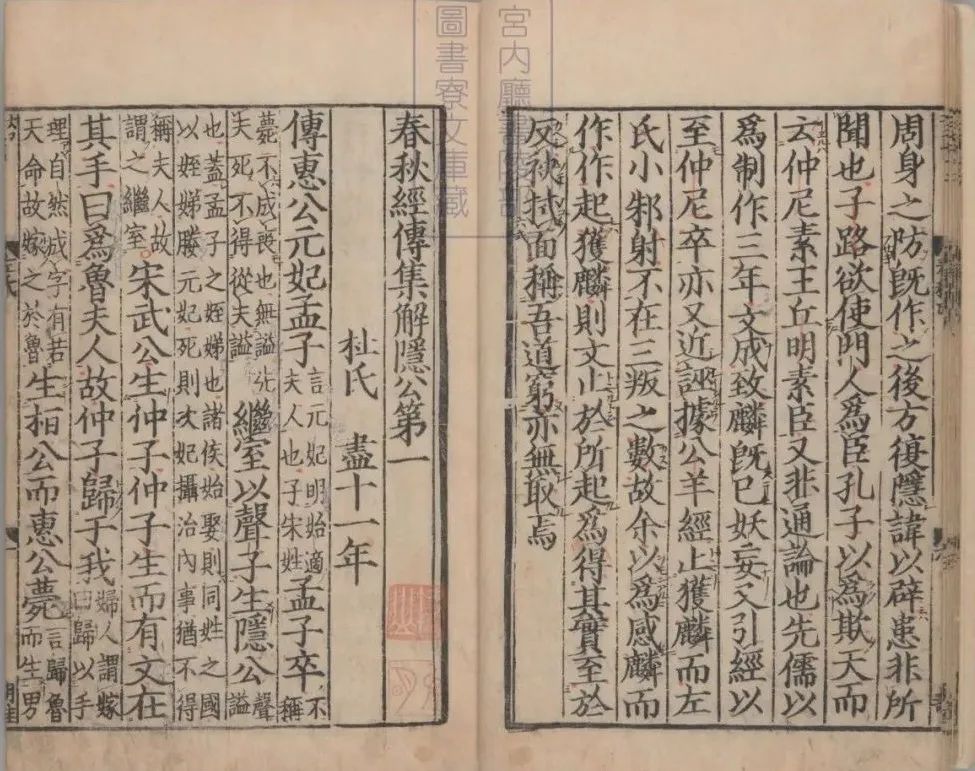 宮內廳書陵部
圖書寮文庫藏
周身之防既作之後方復隱諱以辟患非所
聞也子路欲使門人爲臣孔子以爲欺天而
云仲尼素王丘明素臣又非通論也先儒以
爲制作三年文成致麟既已妖妄又引經以
至仲尼卒亦又近誣據公羊經止獲麟而左
氏小邾射不在三叛之數故余以爲感麟而
作作起獲麟則文止於所起爲得其實至於
反袂拭面稱吾道窮亦無取焉
春秋經傳集解隱公第一
杜氏 盡十一年
傳惠公元妃孟子言元妃明始適夫人也子宋姓孟子卒不稱
薨不成喪也無謚先夫死不得從夫謚繼室以聲子生隱公聲謚
也蓋孟子之姪娣也諸侯始娶則同姓之國以姪娣媵元妃死則次妃攝治內事猶不得
稱夫人故謂之繼室宋武公生仲子仲子生而有文在
其手曰爲魯夫人故仲子歸于我婦人謂嫁曰歸以手
理自然成字有若天命故嫁之於魯生桓公而惠公薨言歸魯而生男